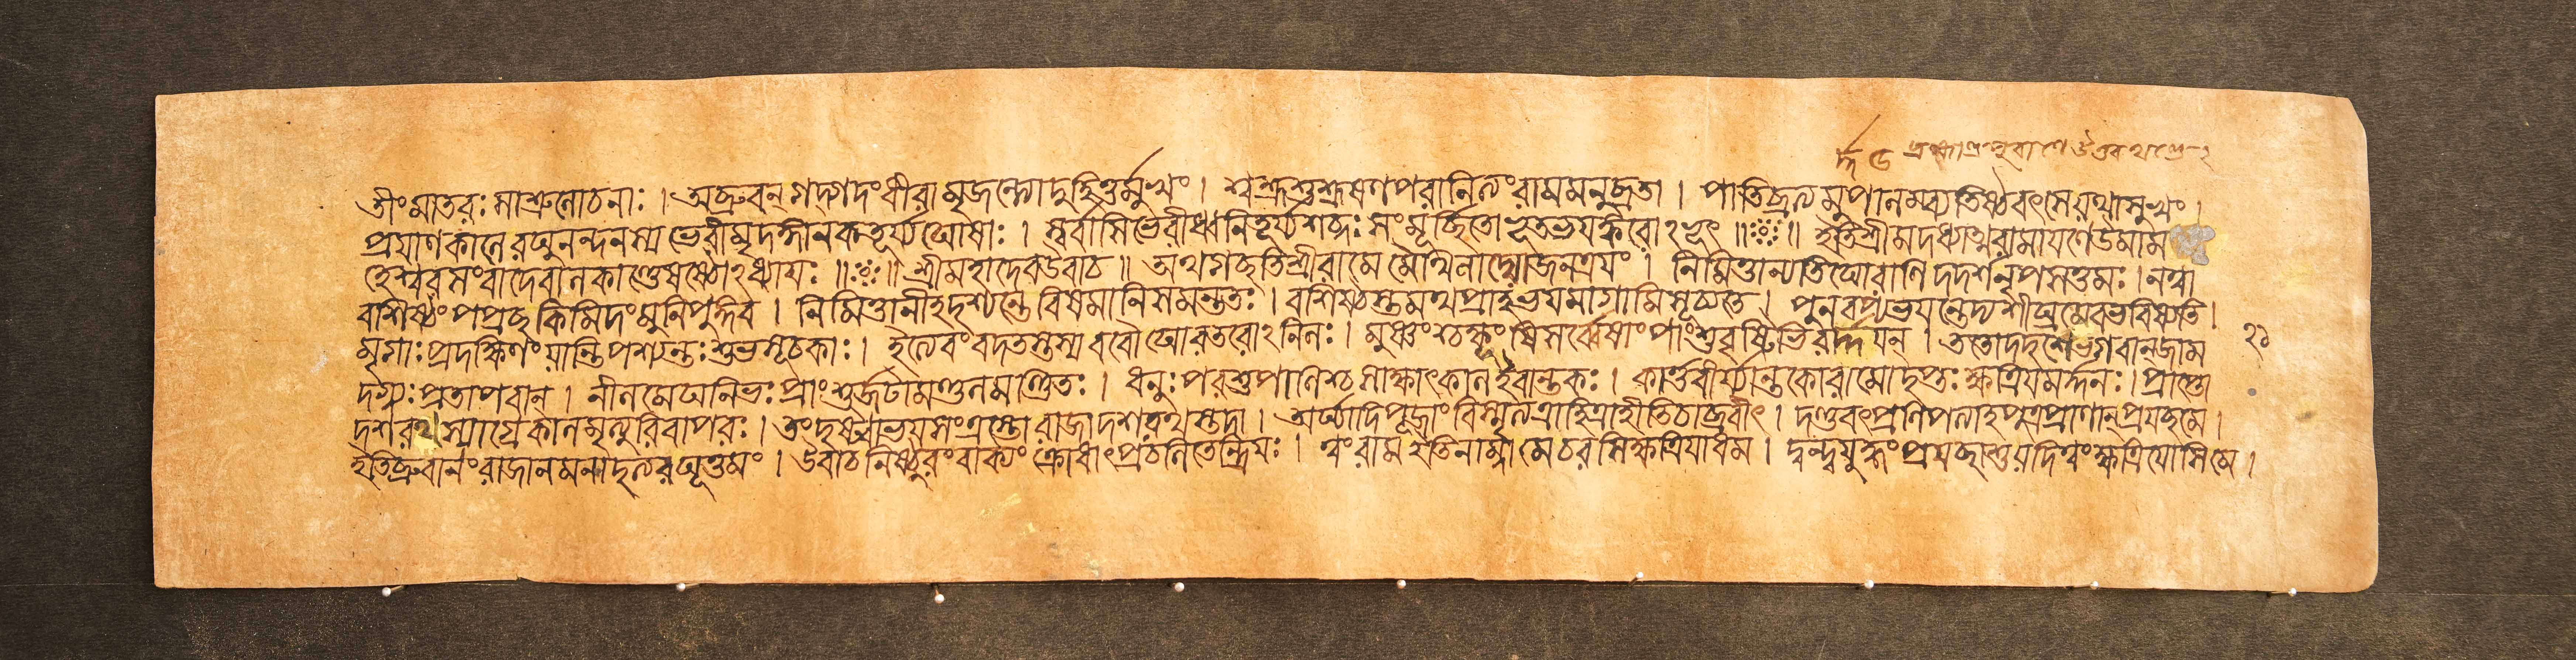 ব্রহ্মাণ্ডপুরাণে উত্তরখণ্ডে २
তীং মাতরঃ সাশ্রুলোচনাঃ । অব্রুবন্ গদ্গদং ধীরা মৃজন্ত্যো দুহিতুর্মুখং । শ্বশ্রূশুশ্রূষণপরা নিত্যং রামমনুব্রতা । পাতিব্রত্যমুপালম্ব্য তিষ্ঠ বৎসে যথাসুখং ।
প্রয়াণকালে রঘুনন্দনস্য ভেরীমৃদঙ্গানকতূর্য্যঘোষাঃ । স্বর্বাসিভেরীধ্বনিতূর্য্যশব্দঃ সংমূর্চ্ছিতো ভূতভয়ঙ্করোঽভূৎ ॥ ॥ ইতি শ্রীমদধ্যাত্মরামায়ণে উমাম
হেশ্বরসংবাদে বালকাণ্ডে ষষ্ঠোঽধ্যায়ঃ ॥ ॥ শ্রীমহাদেব উবাচ ॥ অথ গচ্ছতি শ্রীরামে মৈথিলাদ্যোজনত্রয়ং । নিমিত্তান্যতিঘোরাণি দদর্শ নৃপসত্তমঃ । নত্বা
বশিষ্ঠং পপ্রচ্ছ কিমিদং মুনিপুঙ্গব । নিমিত্তানীহ দৃশ্যন্তে বিষমানি সমন্ততঃ । বশিষ্ঠস্তমথ প্রাহ ভয়মাগামি সূচ্যতে । পুনরপ্যভয়ন্তেদ্য শীঘ্রমেব ভবিষ্যতি ।
মৃগাঃ প্রদক্ষিণং যান্তি পশ্যন্তঃ শুভসূচকাঃ । ইত্যেবং বদতস্তস্য ববৌ ঘোরতরোঽনিলঃ । মুষ্ণংশ্চক্ষূংষি সর্ব্বেষাং পাংশুবৃষ্টিভিরর্দ্দয়ন্ । ততো দদৃশে ভগবান্ জাম २१
দগ্ন্যঃ প্রতাপবান্ । নীলমেঘনিভঃ প্রাংশুর্জটামণ্ডলমণ্ডিতঃ । ধনুঃপরশুপাণিশ্চ সাক্ষাৎকাল ইবান্তকঃ । কার্ত্তবীর্য্যান্তকো রামো দৃপ্তঃ ক্ষত্রিয়মর্দ্দনঃ । প্রাপ্তো
দশরথস্যাগ্রে কালমৃত্যুরিবাপরঃ । তং দৃষ্ট্বা ভয়সংত্রস্তো রাজা দশরথস্তদা । অর্ঘ্যাদিপূজাং বিস্মৃত্য ত্রাহি ত্রাহীতি চাব্রবীৎ । দণ্ডবৎপ্রণিপত্যাহ পুত্রপ্রাণান্ প্রয়চ্ছ মে ।
ইতি ব্রুবানং রাজানমনাদৃত্য রঘূত্তমং । উবাচ নিষ্ঠুরং বাক্যং ক্রোধাৎপ্রচলিতেন্দ্রিয়ঃ । ত্বং রাম ইতি নাম্না মে চরসি ক্ষত্রিয়াধম । দ্বন্দ্বযুদ্ধং প্রয়চ্ছাশু যদি ত্বং ক্ষত্রিয়োসি মে ।